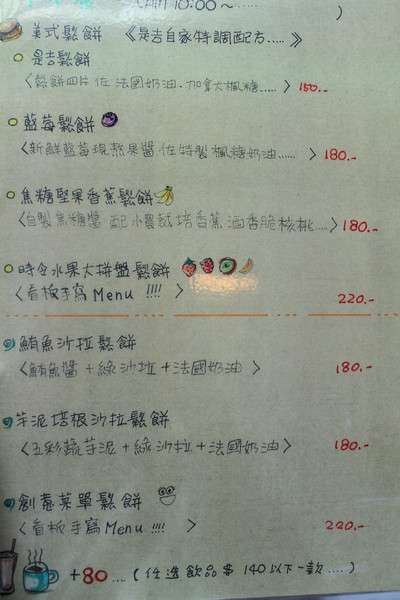 (AM 10:00~..... )
美式鬆餅 《是吉自家特調配方.....》
是吉鬆餅
〈鬆餅四片佐法國奶油.加拿大楓糖.....〉150.-
藍莓鬆餅
〈新鮮藍莓現熬果醬佐特製楓糖奶油...... 〉180.-
焦糖堅果香蕉鬆餅
〈自製焦糖醬 配小農栽培香蕉酒香脆核桃....〉180.-
時令水果大拼盤鬆餅
〈看板手寫Menu !!!! 〉 220.-
鮪魚沙拉鬆餅
〈鮪魚醬+綠沙拉+法國奶油〉 180.-
芋泥培根沙拉鬆餅
〈五彩蔬芋泥+綠沙拉+法國奶油〉 180.-
創意菜單鬆餅
〈看板手寫Menu !!!! 〉 220.-
+80 .... (任選飲品$140以下一款....)